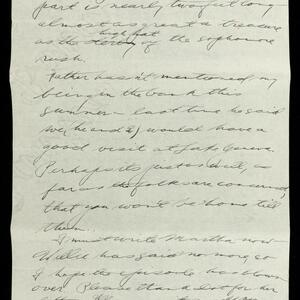 part is nearly two feet long –
almost as great a treasure
as the high hat of the sophomore
rush.
Father hasn't mentioned my
being in the bank this
summer – last time he said
we, he and I, would have a
good visit at Lake Geneva.
Perhaps its just as well, as
far as the folk are concerned,
that you won't be home till
then.
I must write Martha now –
Willie has said no more, so
I hope the episode has blown
over. Please thank dot for her